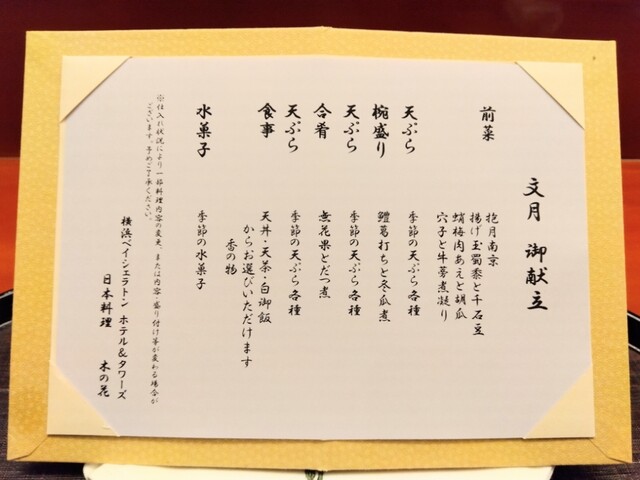 文月 御献立
前菜
抱月南京
揚げ玉蜀黍と千石豆
蛸梅肉あえと胡瓜
穴子と牛蒡煮凝り
天ぷら 季節の天ぷら各種
椀盛り 鱧葛打ちと冬瓜煮
天ぷら 季節の天ぷら各種
合肴 無花果とだつ煮
天ぷら 季節の天ぷら各種
食事 天丼・天茶・白御飯
からお選びいただけます
香の物
水菓子 季節の水菓子
※仕入れ状況により一部料理内容の変更、または内容・盛り付け等が変わる場合が
ございます。予めご了承ください。
横浜ベイシェラトン ホテル&タワーズ
日本料理 木の花